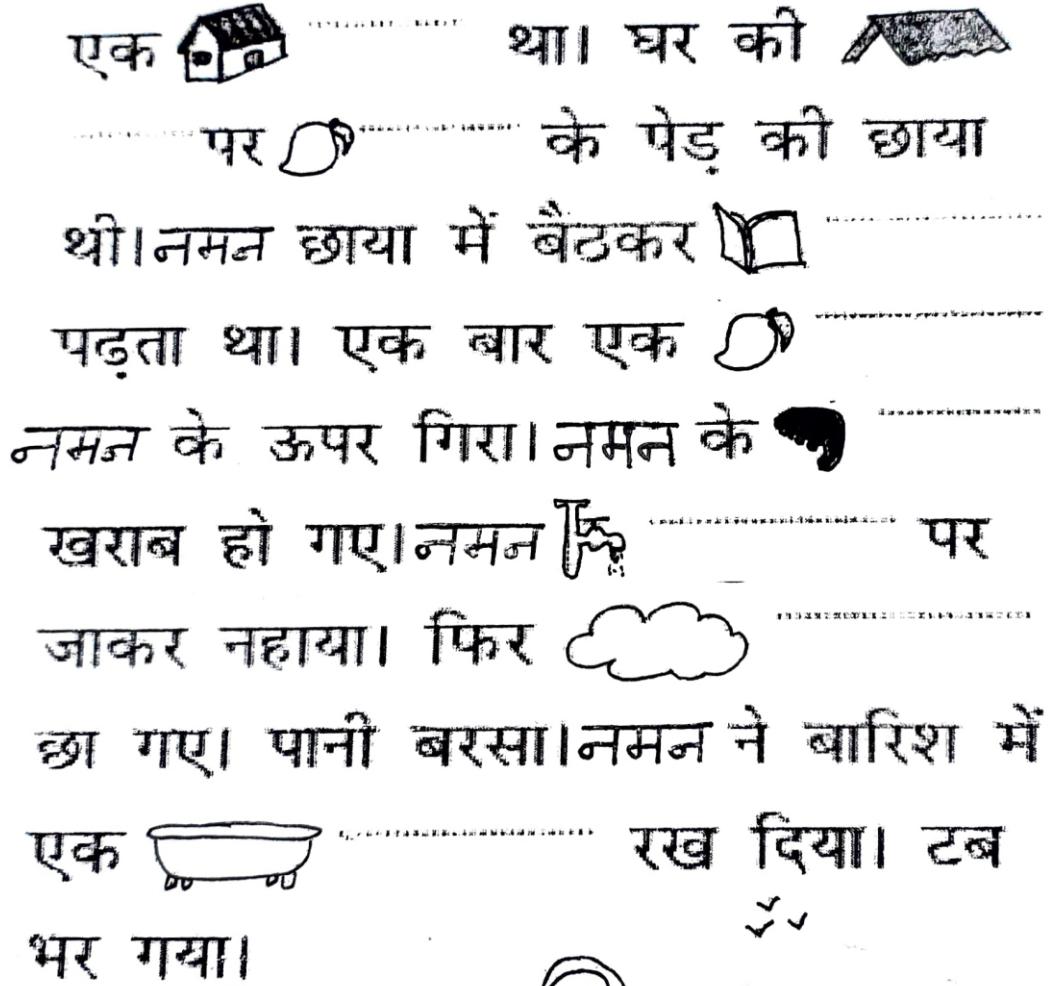 एक ............ था। घर की
............ पर ............ के पेड़ की छाया
थी। नमन छाया में बैठकर ............
पढ़ता था। एक बार एक ............
नमन के ऊपर गिरा। नमन के ............
खराब हो गए। नमन ............ पर
जाकर नहाया। फिर ............
छा गए। पानी बरसा। नमन ने बारिश में
एक ............ रख दिया। टब
भर गया।